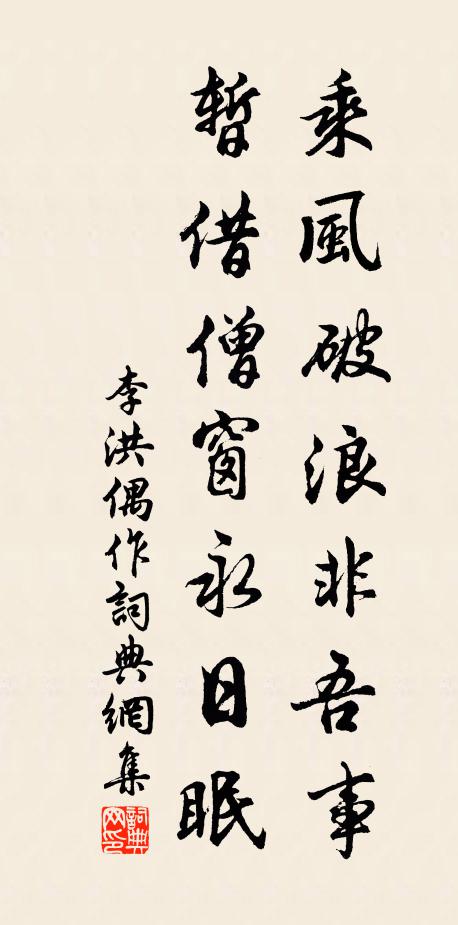 乘風破浪非吾事
暫借僧窗永日眠
李洪偶作詞典網集
詞典网印